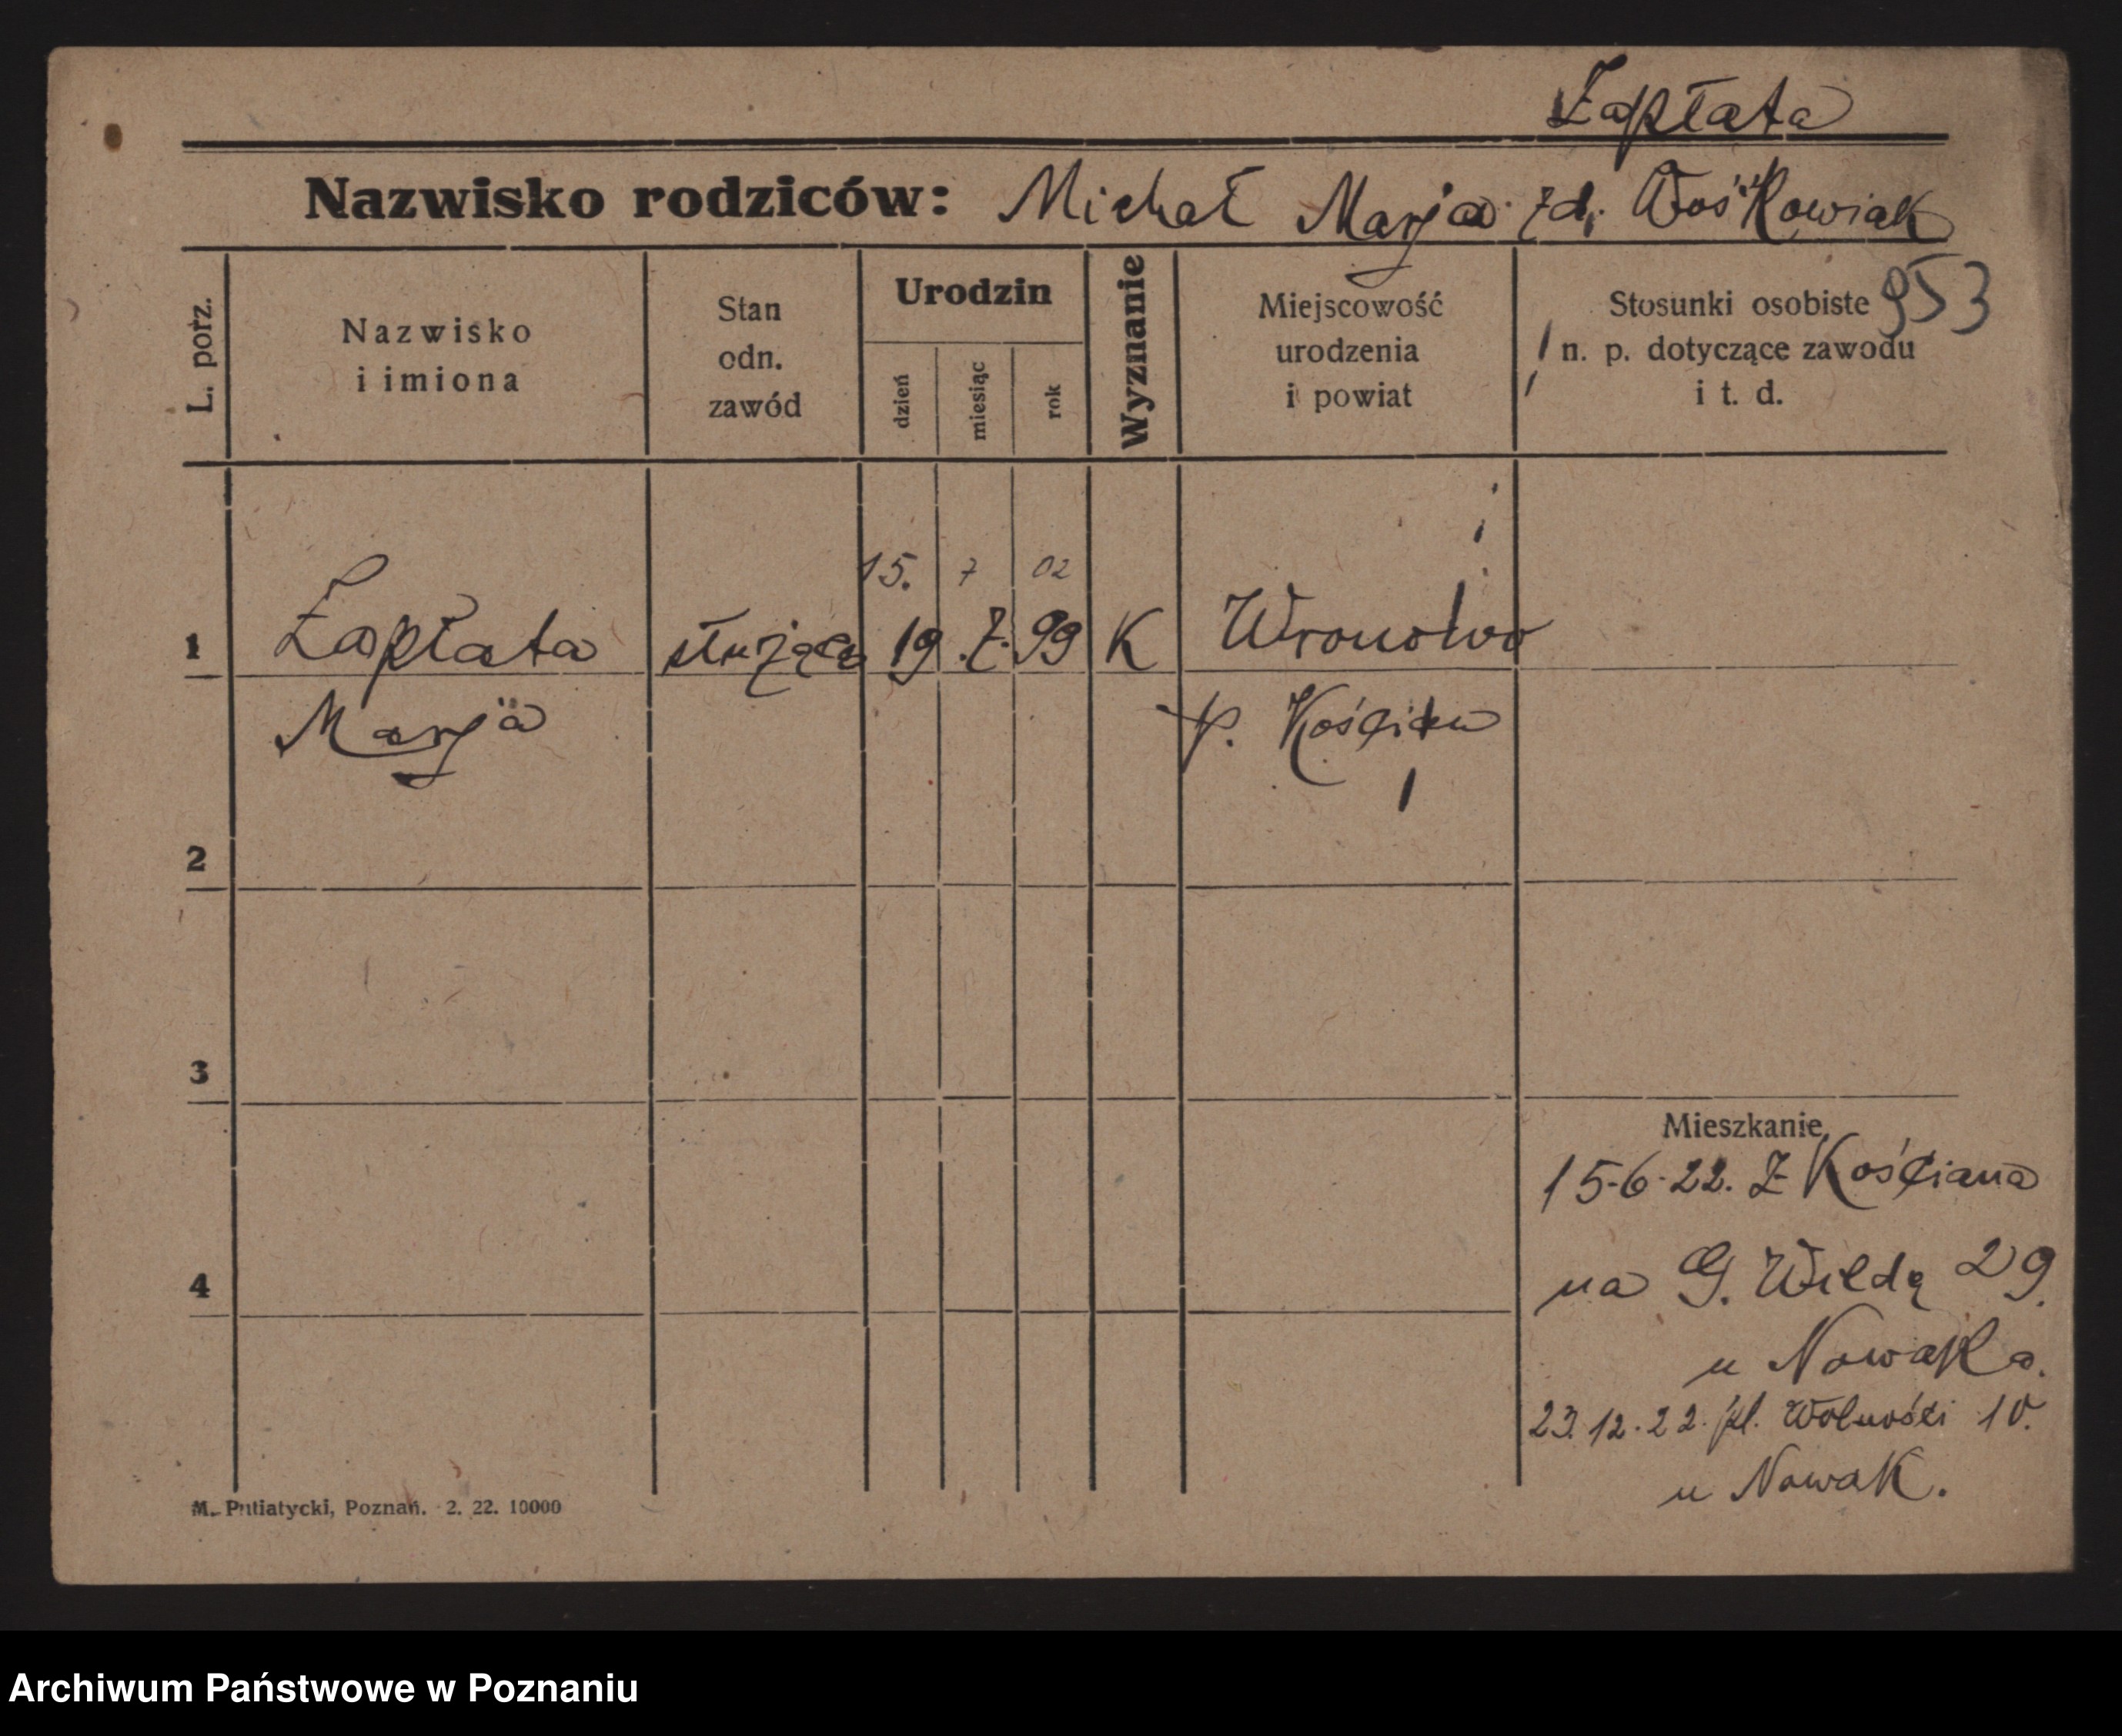 Zapłata
Nazwisko rodziców: Michał Marja zd. Wośkowiak
953
L. porz.
Nazwisko
i imiona
Stan
odn.
zawód
Urodzin
dzień
miesiąc
rok
Wyznanie
Miejscowość
urodzenia
i powiat
Stosunki osobiste
n. p. dotyczące zawodu
i t. d.
15. 7 02
1 Zapłata służąca 19. 7. 99 K
Marja p. Kościan
2
3
Mieszkanie
15-6-22. Z Kościana
4
na G. Wildę 29.
u Nowaka.
23.12.22. pl. Wolności 10.
u Nowak.
M. Putiatycki, Poznań. 2. 22. 10000
Archiwum Państwowe w Poznaniu